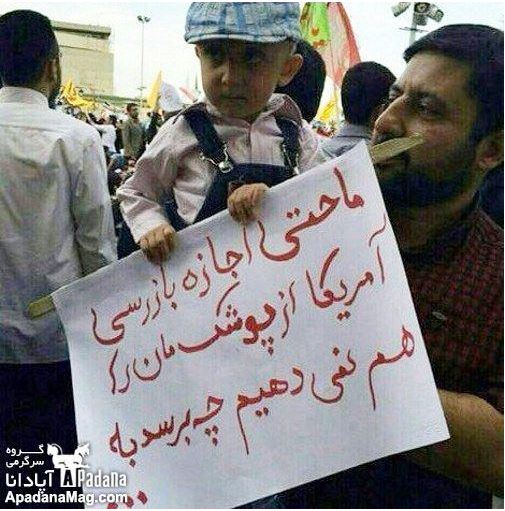 ما حتی اجازه بازرسی
آمریکا از پوشک مان را
هم نمی دهیم چه برسد به
...
گروه
سرگرمی
آپادانا
Apadana
ApadanaMag.com